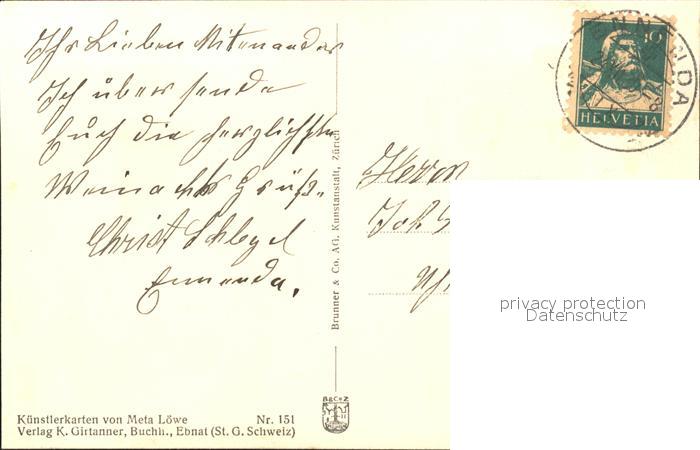 Ihr Lieben Mitenander
Ich über sende
Euch die herzlichsten
Weinachts Grüße
Christ Schlegel
Ennenda.
Künstlerkarten von Meta Löwe Nr. 151
Verlag K. Girtanner, Buchh., Ebnat (St. G. Schweiz)
Brunner & Co. AG. Kunstanstalt, Zürich
B&CoZ
10
HELVETIA
ENNENDA
Herrn
Joh
privacy protection
Datenschutz